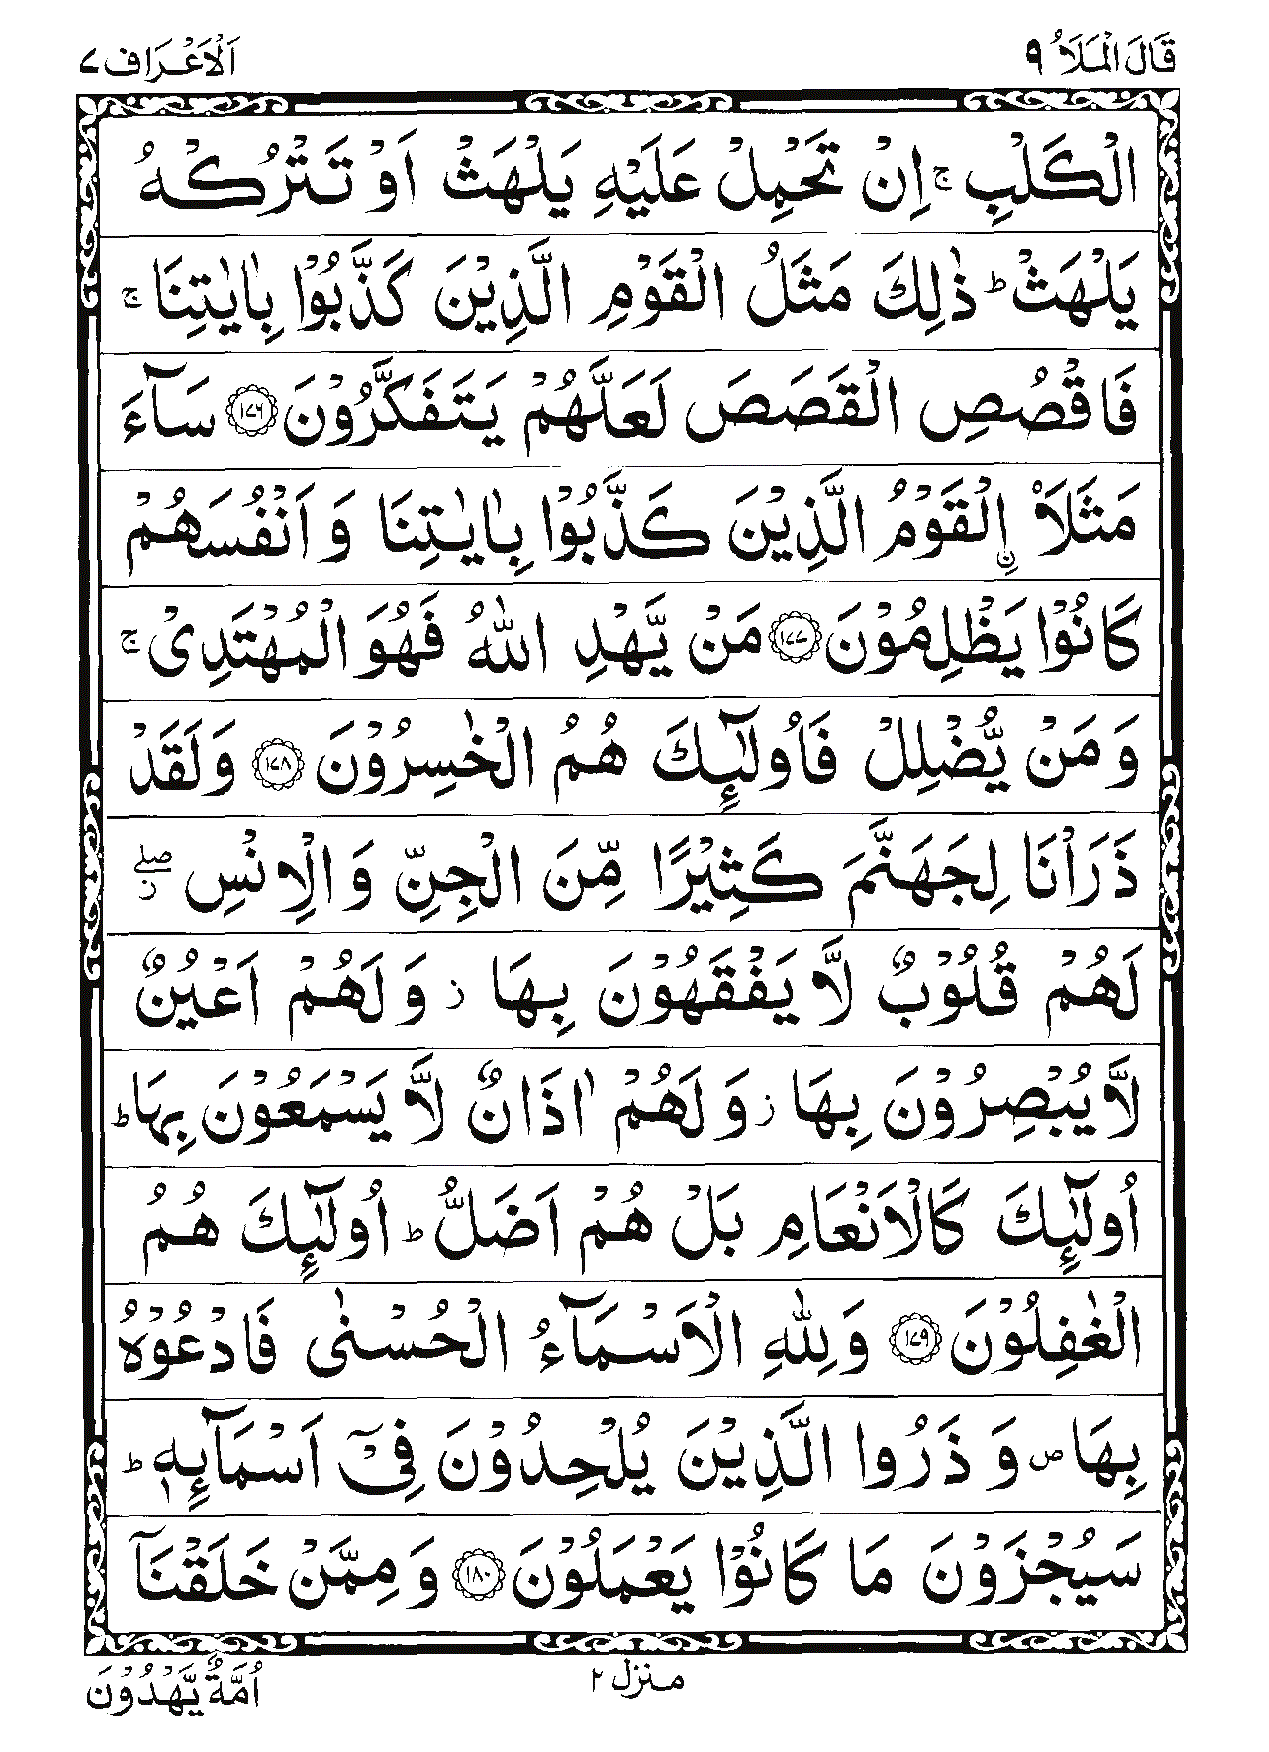 قَالَ الْمَلَاُ ٩
اَلْاَعْرَاف ٧
الْكَلْبِ ۚ اِنْ تَحْمِلْ عَلَيْهِ يَلْهَثْ اَوْ تَتْرُكْهُ
يَلْهَثْ ؕ ذٰلِكَ مَثَلُ الْقَوْمِ الَّذِيْنَ كَذَّبُوْا بِاٰيٰتِنَا ۚ
فَاقْصُصِ الْقَصَصَ لَعَلَّهُمْ يَتَفَكَّرُوْنَ ﴿١٧٦﴾ سَآءَ
مَثَلَا ۨالْقَوْمُ الَّذِيْنَ كَذَّبُوْا بِاٰيٰتِنَا وَ اَنْفُسَهُمْ
كَانُوْا يَظْلِمُوْنَ ﴿١٧٧﴾ مَنْ يَّهْدِ اللّٰهُ فَهُوَ الْمُهْتَدِيْ ۚ
وَ مَنْ يُّضْلِلْ فَاُولٰٓئِكَ هُمُ الْخٰسِرُوْنَ ﴿١٧٨﴾ وَلَقَدْ
ذَرَاْنَا لِجَهَنَّمَ كَثِيْرًا مِّنَ الْجِنِّ وَ الْاِنْسِ ۖ ز
لَهُمْ قُلُوْبٌ لَّا يَفْقَهُوْنَ بِهَا ز وَ لَهُمْ اَعْيُنٌ
لَّا يُبْصِرُوْنَ بِهَا ز وَ لَهُمْ اٰذَانٌ لَّا يَسْمَعُوْنَ بِهَا ؕ
اُولٰٓئِكَ كَالْاَنْعَامِ بَلْ هُمْ اَضَلُّ ؕ اُولٰٓئِكَ هُمُ
الْغٰفِلُوْنَ ﴿١٧٩﴾ وَلِلّٰهِ الْاَسْمَآءُ الْحُسْنٰى فَادْعُوْهُ
بِهَا ص وَ ذَرُوا الَّذِيْنَ يُلْحِدُوْنَ فِيْٓ اَسْمَآئِهٖ ؕ
سَيُجْزَوْنَ مَا كَانُوْا يَعْمَلُوْنَ ﴿١٨٠﴾ وَ مِمَّنْ خَلَقْنَآ
منزل ٢
اُمَّةٌ يَّهْدُوْنَ